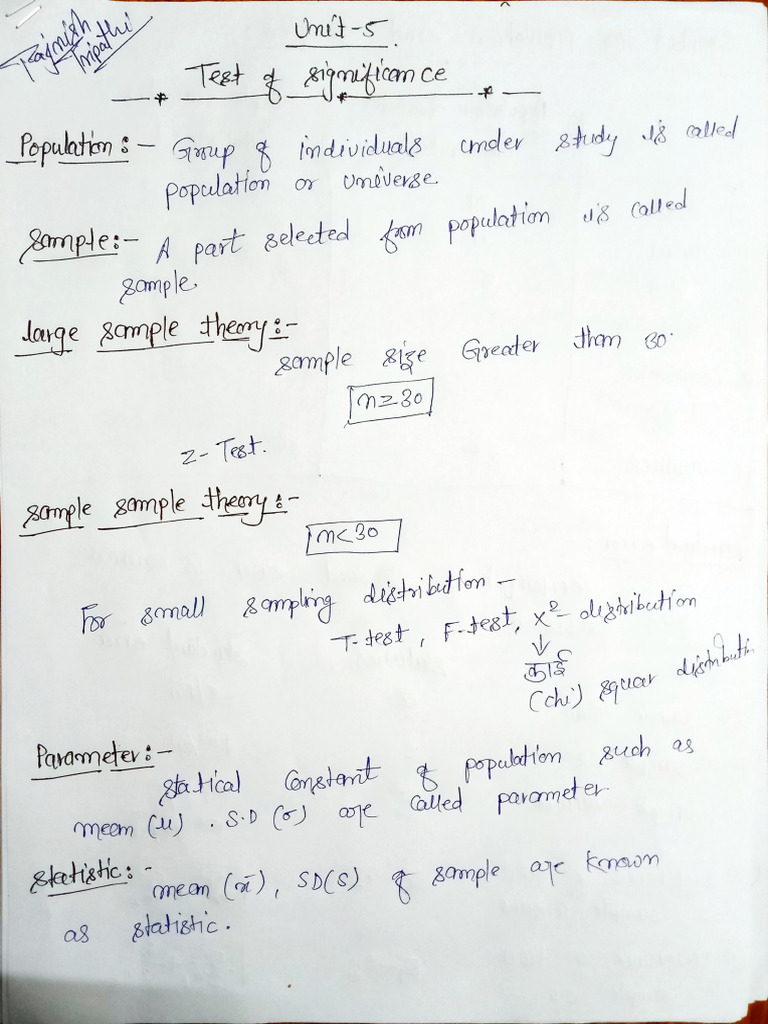 Rajnish
Tripathi
Unit-5.
Test of significance
Population:- Group of individuals under study is called
population or universe.
Sample:- A part selected from population is called
sample.
large sample theory:-
sample size Greater than 30.
n≥30
Z-Test.
sample sample theory:-
n<30
For small sampling distribution-
T-test, F-test, x²-distribution
↓
काई
(chi) squar distribution
Parameter:-
statical constant of population such as
mean (μ). S.D (σ) are called parameter
Statistic:-
mean (x̄), SD(S) of sample are known
as statistic.